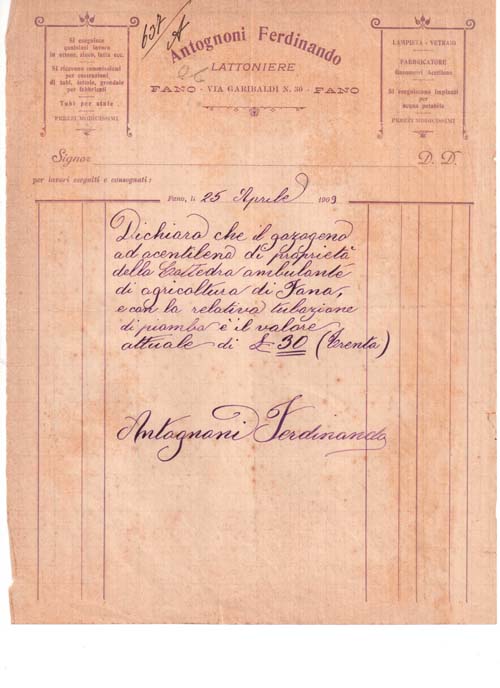 637 A
Antognoni Ferdinando
LATTONIERE
FANO - VIA GARIBALDI N. 30 - FANO
Si eseguisce
qualsiasi lavoro
in ottone, zinco, latta ecc.
Si ricevono commissioni
per costruzioni
di tubi, tettoie, grondaie
per fabbricati
Tubi per stufe
PREZZI MODICISSIMI
LAMPISTA - VETRAIO
FABBRICATORE
Gazometri Acetilene
Si eseguiscono Impianti
per
acqua potabile
PREZZI MODICISSIMI
Signor
D. D.
per lavori eseguiti e consegnati:
Fano, li 25 Aprile 1909
Dichiara che il gazogeno
ad acentileno di proprietà
della Cattedra ambulante
di agricoltura di Fano,
e con la relativa tubazione
di piombo è il valore
attuale di £ 30 (Trenta)
Antognoni Ferdinando